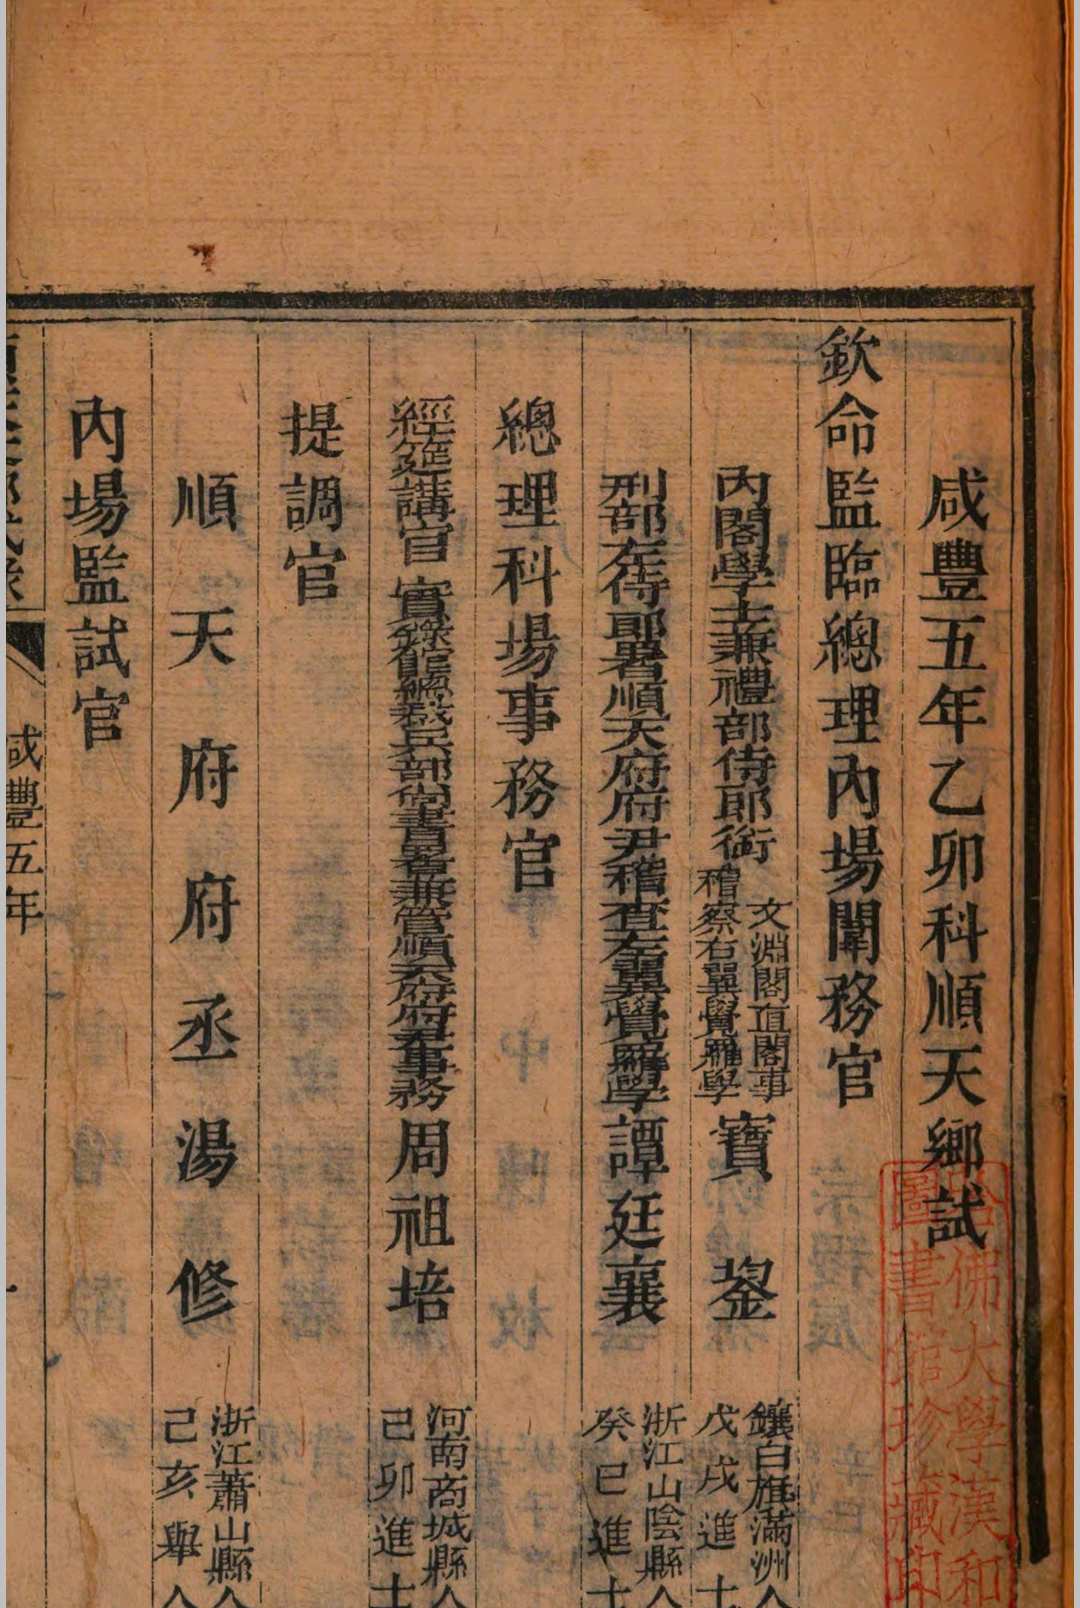 咸豐五年乙卯科順天鄉試
欽命監臨總理內場闈務官
內閣學士兼禮部侍郎銜
文淵閣直閣事
稽察右翼覺羅學
寶鋆
鑲白旗滿洲人
戊戌進士
刑部左侍郎署順天府府尹稽查左翼覺羅學譚廷襄
浙江山陰縣人
癸巳進士
總理科場事務官
經筵講官 實錄館總裁兵部尚書署兼管順天府府尹事務周祖培
河南商城縣人
己卯進士
提調官
順天府府丞湯修
浙江蕭山縣人
己亥舉人
內場監試官
順天鄉試錄
咸豐五年
一
哈佛大學漢和
圖書館珍藏印